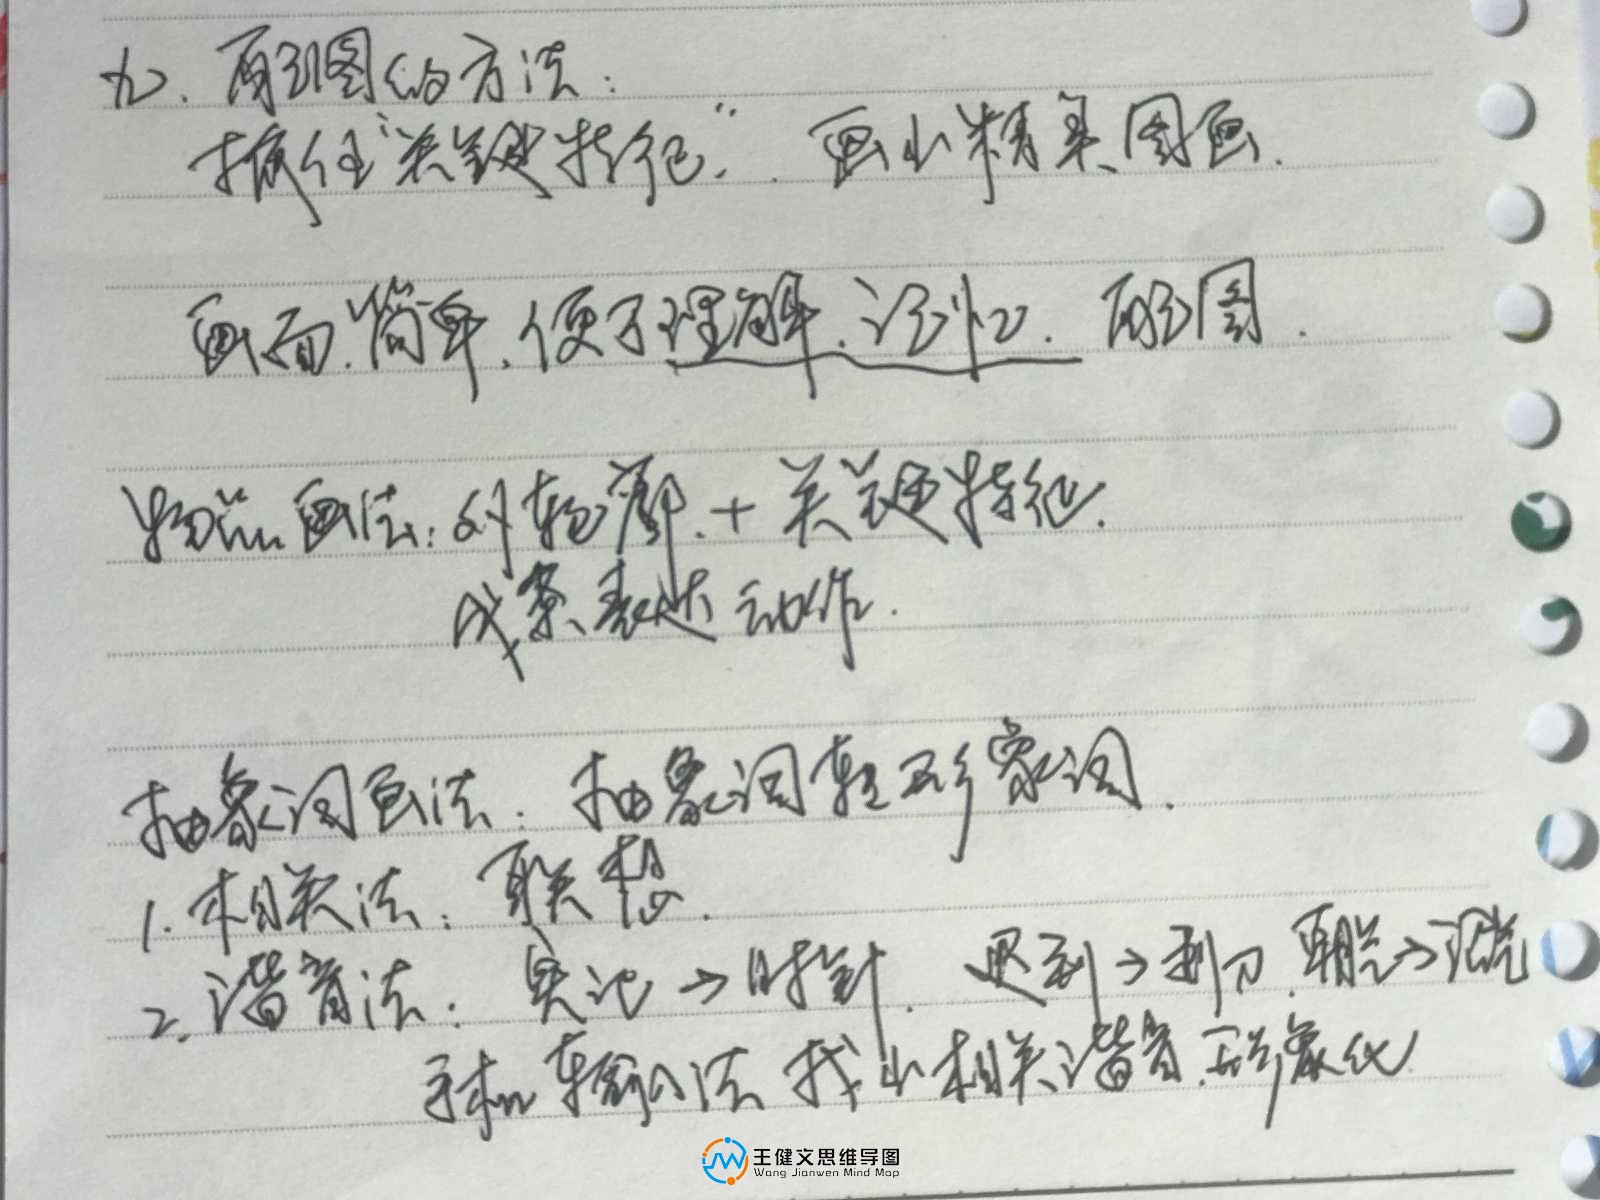 九、配图的方法:
抓住"关键特征". 画出精美图画.
画面.简单,便于理解.记忆.配图.
物品画法:外轮廓.+关键特征.
线条表达动作.
抽象词画法:抽象词转形象词.
1.相关法:联想.
2.谐音法: →时针. 迟到→利刀.
手机输入法 找出相关谐音.形象化
王健文思维导图
Wang Jianwen Mind Map